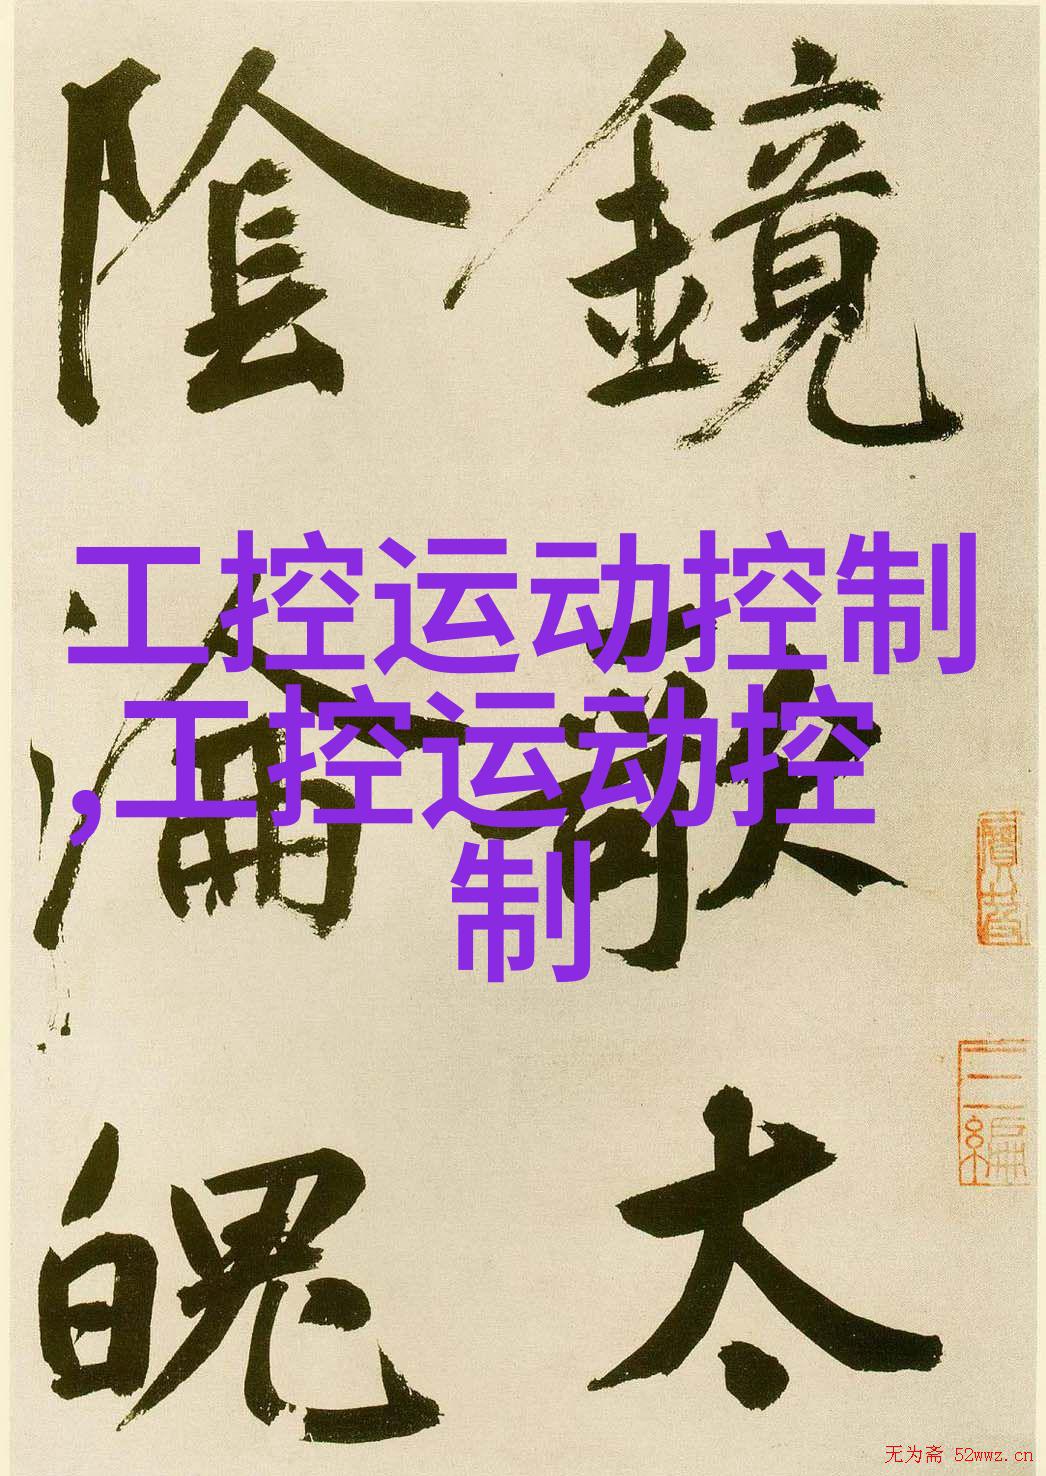 鏡太
陰淪魄
工控运动控制
,工控运动控
制
无为斋 52wwz.cn